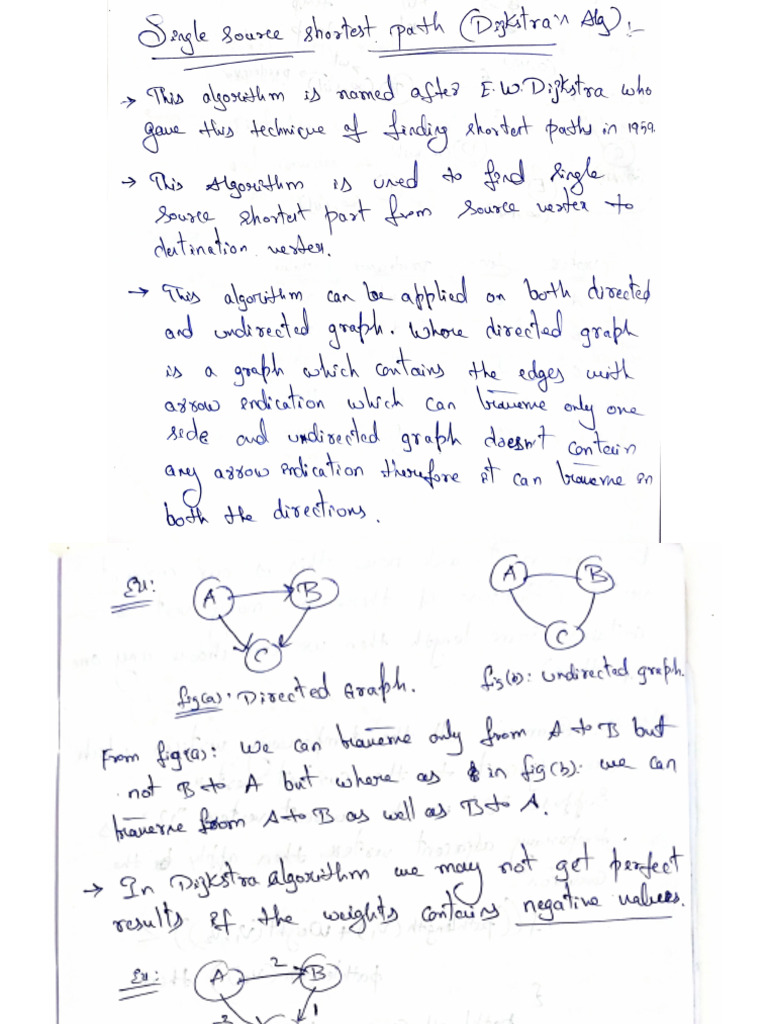 Single source shortest path (Dijkstra's Alg):-
→ This algorithm is named after E.W.Dijkstra who
gave this technicue of finding shortest paths in 1959.
→ This Algorithm is used to find single
source shortest part from source vertex to
destination vertex.
→ This algorithm can be applied on both directed
and undirected graph. Whore directed graph
is a graph which contains the edges with
arrow indication which can traverse only one
side and undirected graph doesn't contain
any arrow indication therefore it can traverse in
both the directions.
Ex:
A B C
A B C
fig(a): Directed Graph.
fig(b): undirected graph.
From fig(a): we can traverse only from A to B but
not B to A but where as in fig(b): we can
traverse from A to B as well as B to A.
→ In Dijkstra algorithm we may not get perfect
results if the weights contains negative values.
Ex: A 2 B
1